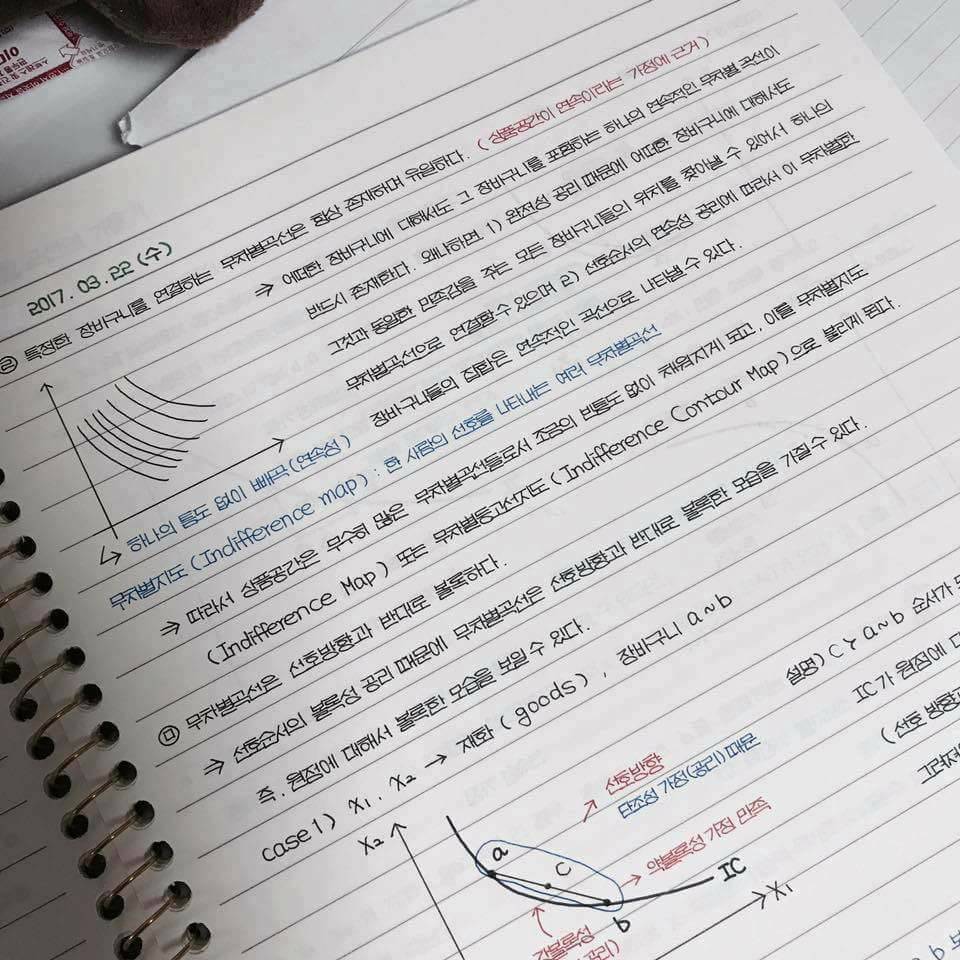 2017.03.22(수)
㉣ 특정한 장바구니를 연결하는 무차별곡선은 항상 존재하며 유일하다. (상품공간이 연속이라는 가정에 근거)
⇒ 어떠한 장바구니에 대해서도 그 장바구니를 포함하는 하나의 연속적인 무차별 곡선이
반드시 존재한다. 왜냐하면 1) 완전성 공리 때문에 어떠한 장바구니에 대해서도
그것과 동일한 만족감을 주는 모든 장바구니들의 위치를 찾아낼 수 있어서 하나의
무차별곡선으로 연결할 수 있으며 2) 선호순서의 연속성 공리에 따라서 이 무차별한
장바구니들의 집합은 연속적인 곡선으로 나타낼 수 있다.
↳ 하나의 틈도 없이 빼곡(연속성)
무차별지도(Indifference map) : 한 사람의 선호를 나타내는 여러 무차별곡선
⇒ 따라서 상품공간은 무수히 많은 무차별곡선들로서 조금의 빈틈도 없이 채워지게 되고, 이를 무차별지도
(Indifference Map) 또는 무차별등고선지도(Indifference Contour Map)으로 불리게 된다.
㉤ 무차별곡선은 선호방향과 반대로 볼록하다.
⇒ 선호순서의 볼록성 공리 때문에 무차별곡선은 선호방향과 반대로 볼록한 모습을 가질 수 있다.
즉, 원점에 대해서 볼록한 모습을 보일 수 있다.
case1) X₁, X₂ → 재화(goods), 장바구니 a~b
설명) C≻a~b 순서가
IC가 원점에
(선호 방향
X₂
a
C
b
IC
X₁
↗ 선호방향
단조성 가정(공리)때문
→ 약볼록성 가정 만족
강볼록성
공리)